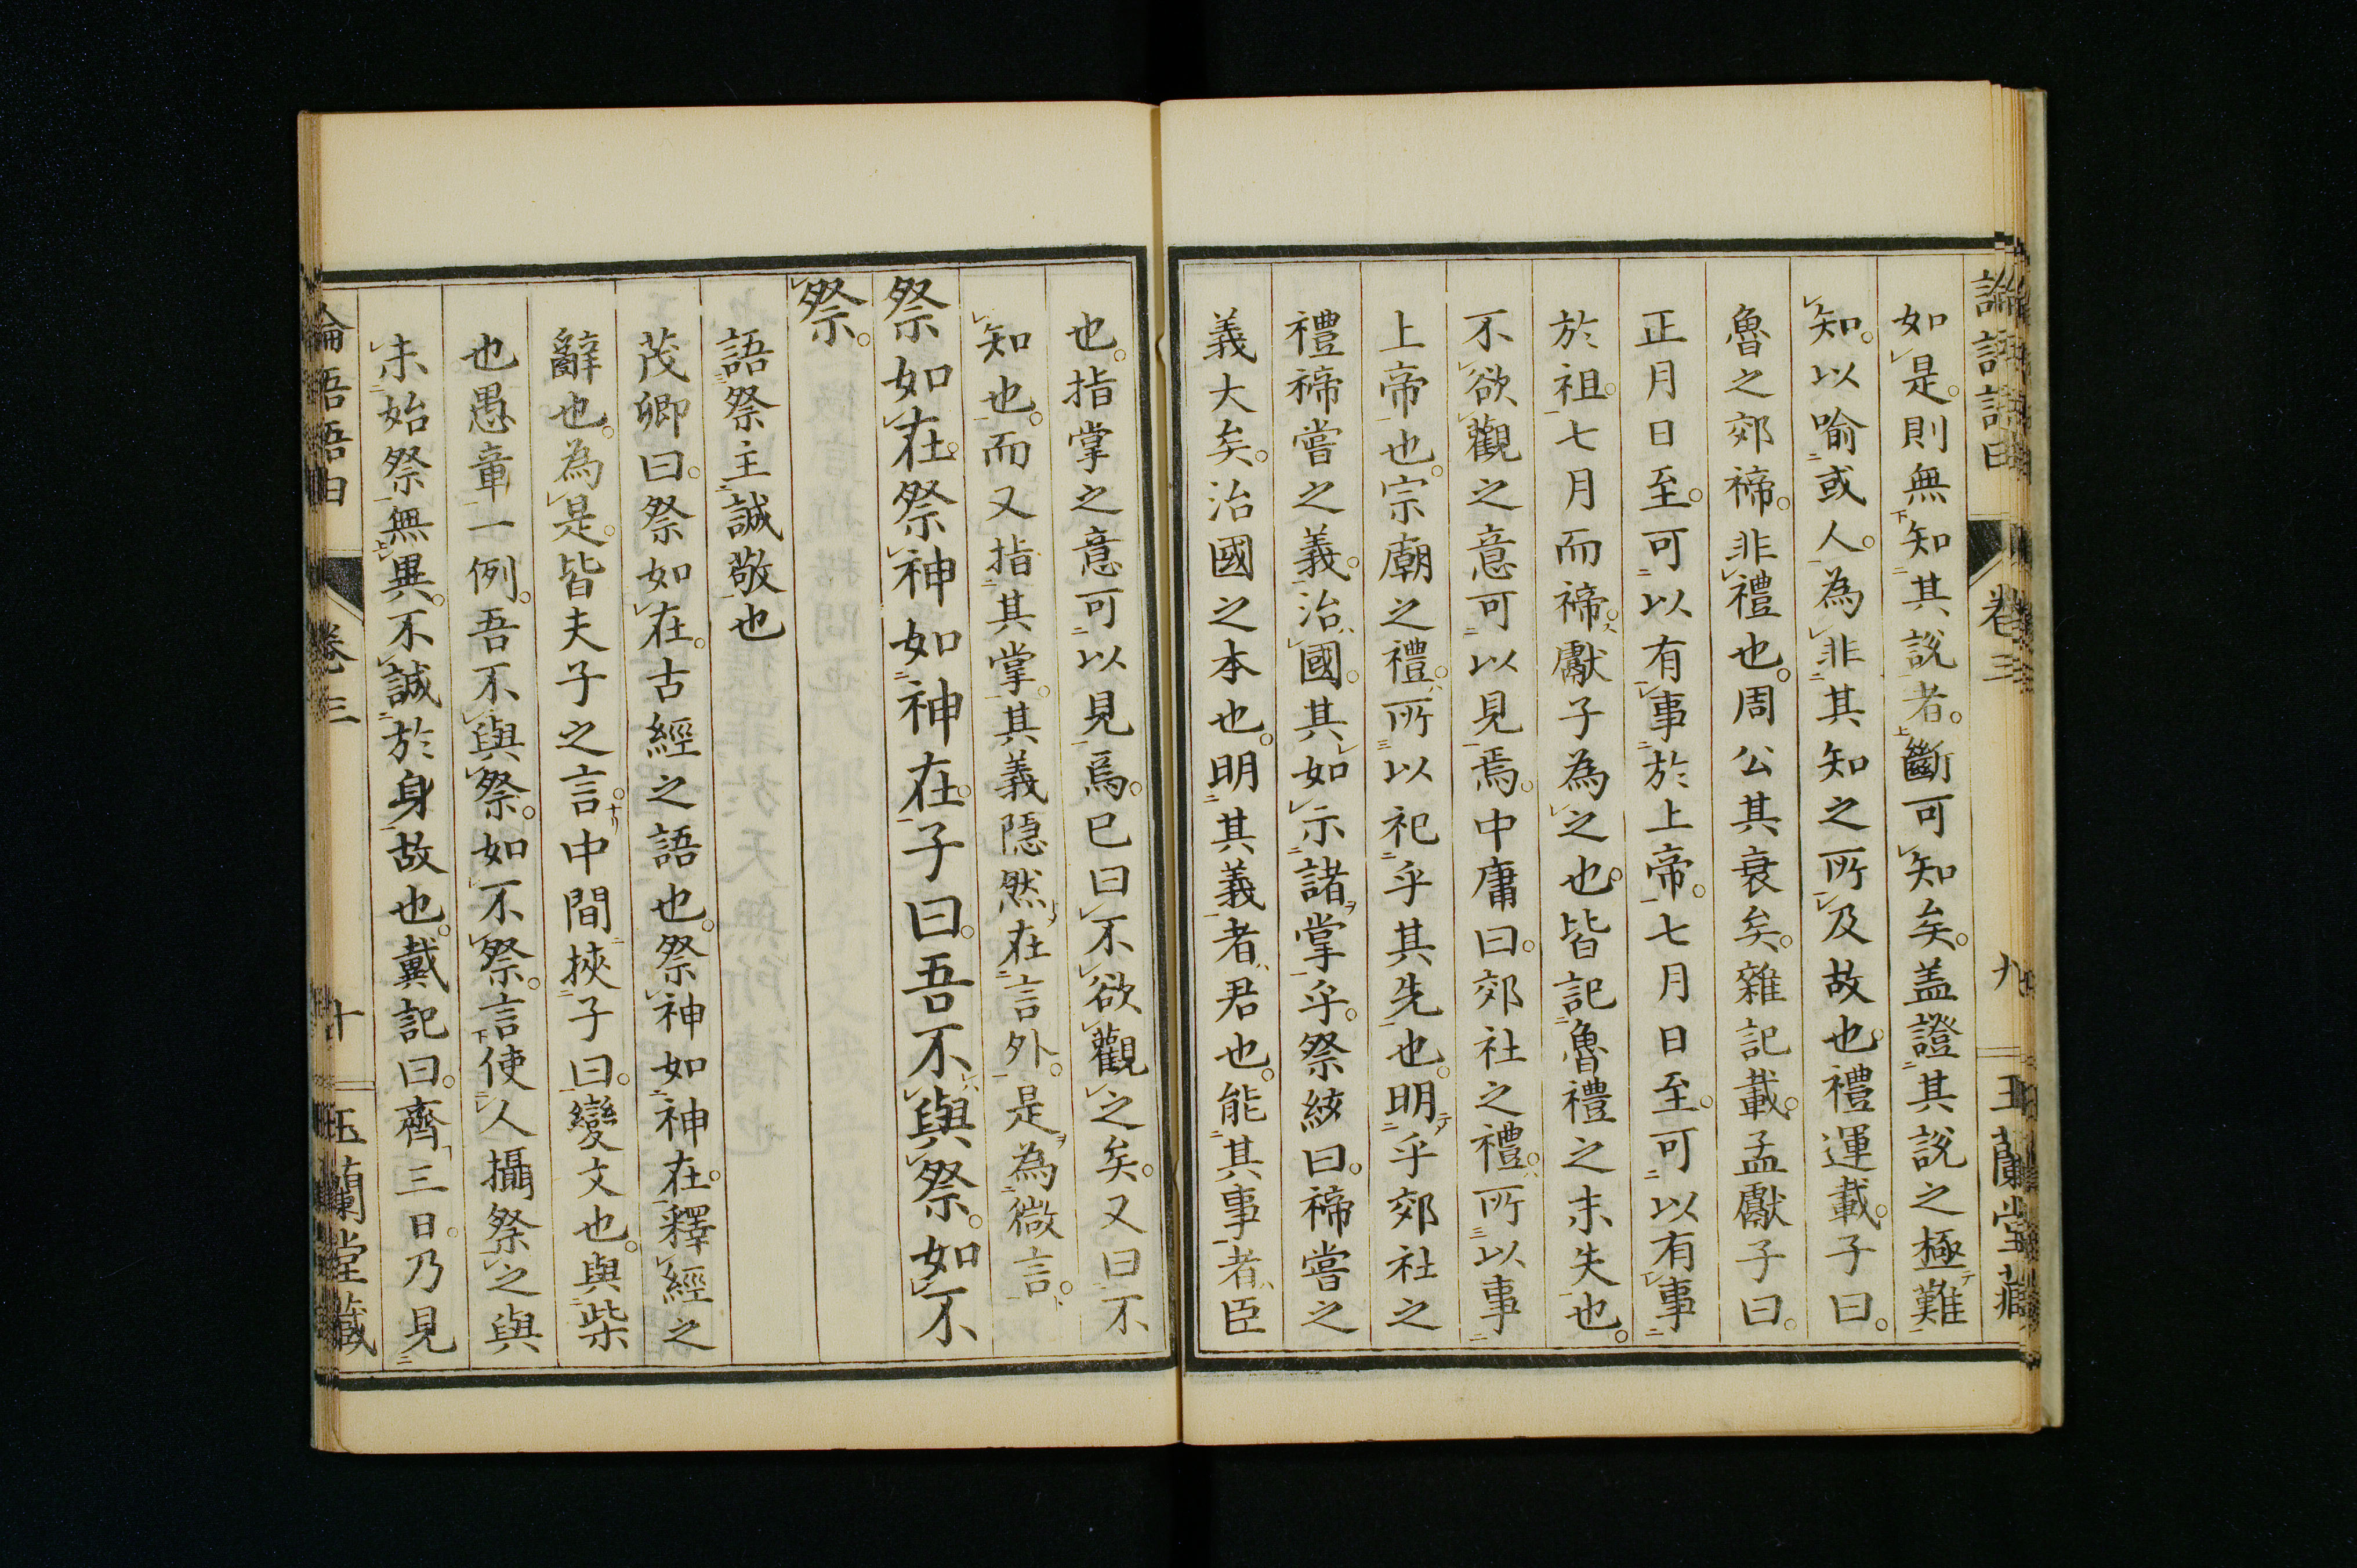 論語語由 卷三 九 玉蘭堂藏
如是。則無知其說者。斷可知矣。蓋證其說之極難
知。以喻或人。為非其知之所及故也。禮運載。子曰。
魯之郊禘。非禮也。周公其衰矣。雜記載。孟獻子曰。
正月日至。可以有事於上帝。七月日至。可以有事
於祖。七月而禘。獻子為之也。皆記魯禮之未失也。
不欲觀之意可以見焉。中庸曰。郊社之禮。所以事
上帝也。宗廟之禮。所以祀乎其先也。明乎郊社之
禮禘嘗之義。治國。其如示諸掌乎。祭統曰。禘嘗之
義大矣。治國之本也。明其義者君也。能其事者臣
也。指掌之意可以見焉。已曰不欲觀之矣。又曰不
知也。而又指其掌。其義隱然在言外。是為微言。
祭如在。祭神如神在。子曰。吾不與祭。如不
祭。
語祭主誠敬也
茂卿曰。祭如在。古經之語也。祭神如神在。釋經之
辭也。為是。皆夫子之言。中間挾子曰。變文也。與柴
也愚章一例。吾不與祭。如不祭。言使人攝祭之與
未始祭無異。不誠於身故也。戴記曰。齊三日。乃見
論語語由 卷三 十 玉蘭堂藏